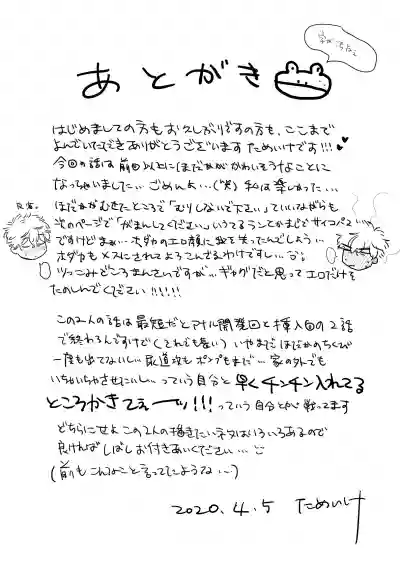 あとがき
はじめましての方もお久しぶりですの方も、ここまで
よんでいただきありがとうございます ためいけです!!!
今回の話は前回以上にほだかがかわいそうなことに
なっちゃいました… ごめんよ…(笑) 私は楽しかった…
ところで「むりしないで下さい」ていいながら
次のページで「がまんしてください」いうてるランとかまじでサイコパス…
ですけどまぁ… ホダカのエロ顔に
ホダカもメスにされてよろこんでるわけですし…
ツッこみどころまんさいですが… ギャグだと思ってエロだけを
たのしんでください!!!!!
この2人の話は最短だとアナル開発回と挿入回の2話
で終わるんですけど(それでも長い) いやまだほだかのちくび
一度も出てないし… 尿道攻もポンプもまだ… 家の外でも
いちゃいちゃさせたいし… っていう自分と早くチンチン入れてる
ところかきてぇーッ!!! っていう自分とで戦ってます
どちらにせよこの2人の描きたいネタはいろいろあるので
良ければしばしお付きあいください…
(前もこんなこと言ってたような…)
2020.4.5 ためいけ